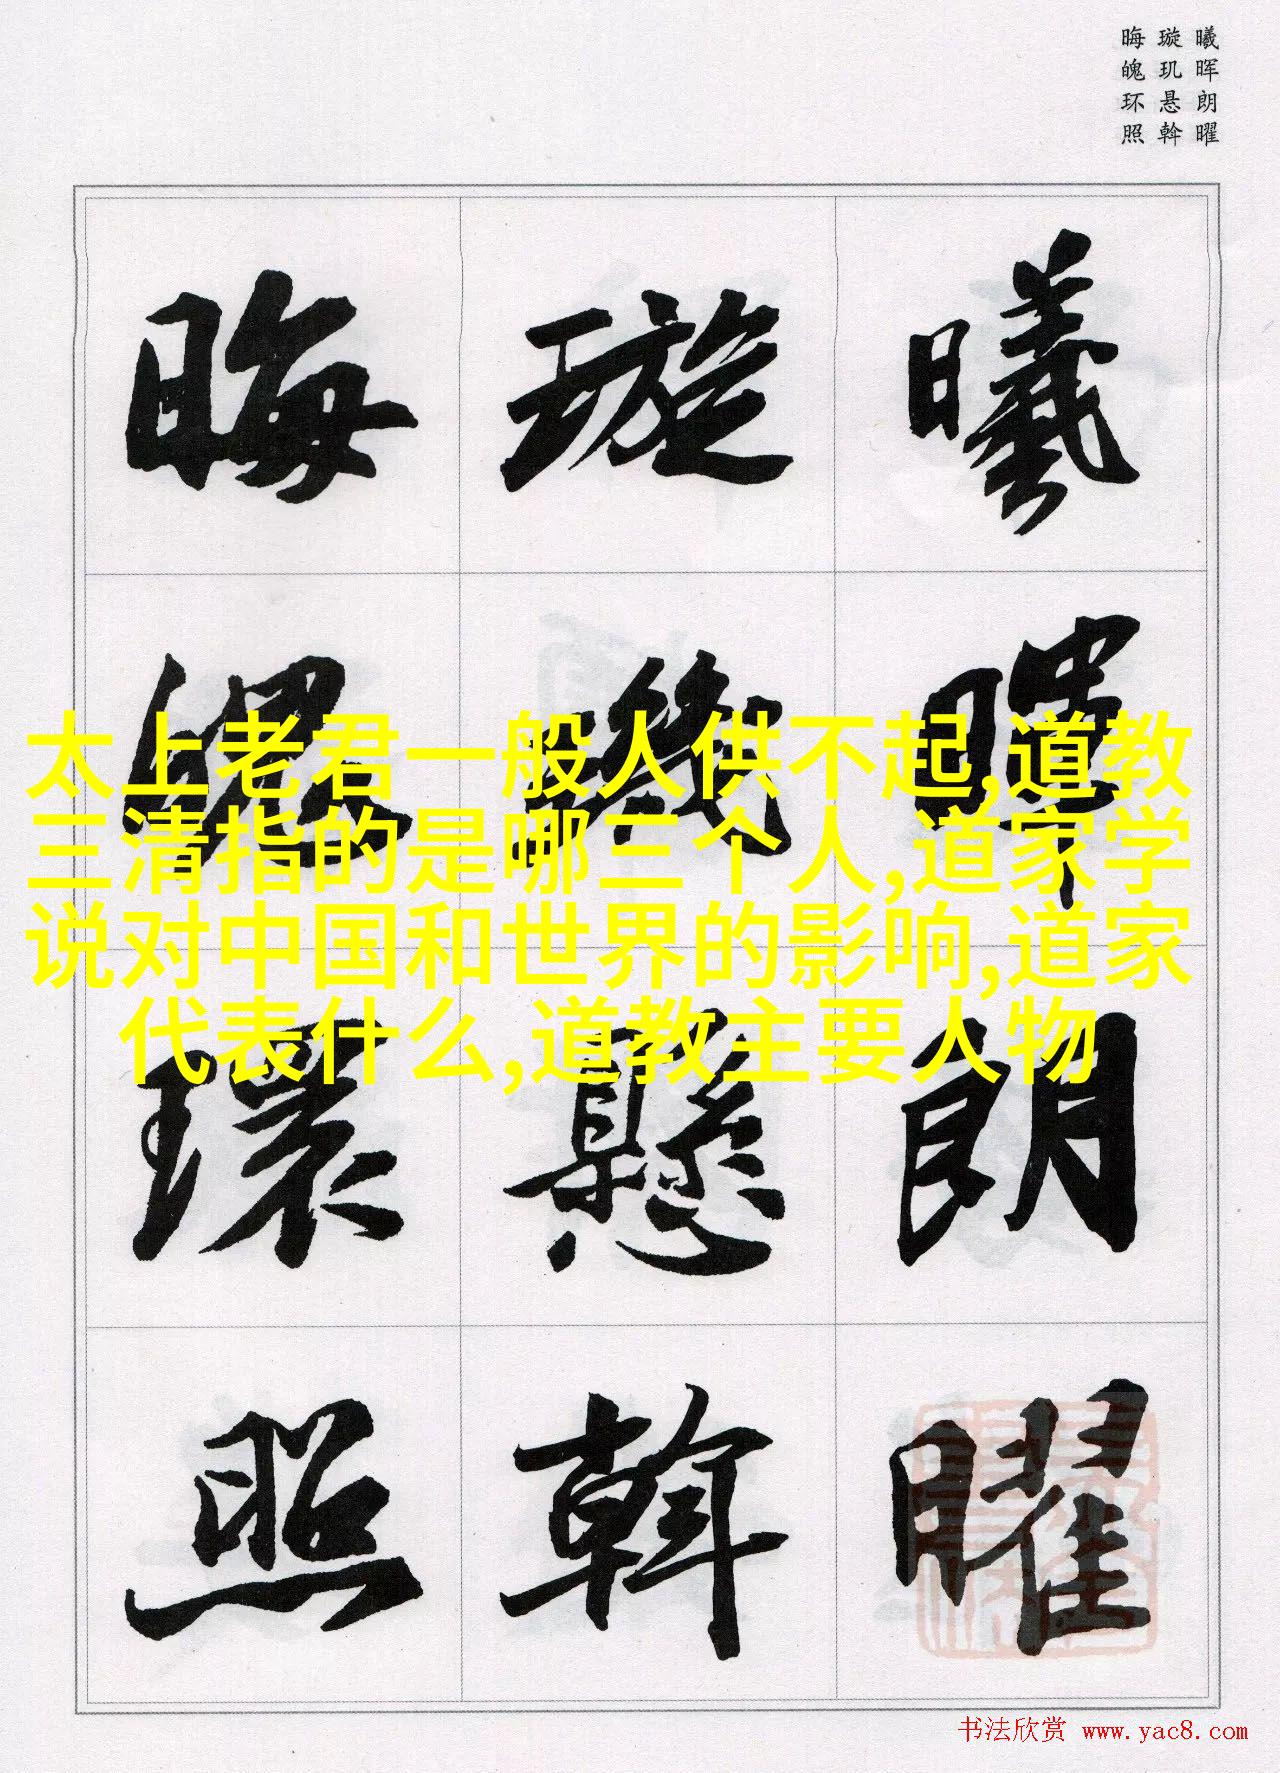 曦晖朗曜
璇玑悬斡
晦魄环照
曦暉朗曜
璇璣懸斡
晦魄環照
太上老君一般人供不起,道教
三清指的是哪三个人,道家学
说对中国和世界的影响,道家
代表什么,道教主要人物
书法欣赏 www.yac8.com